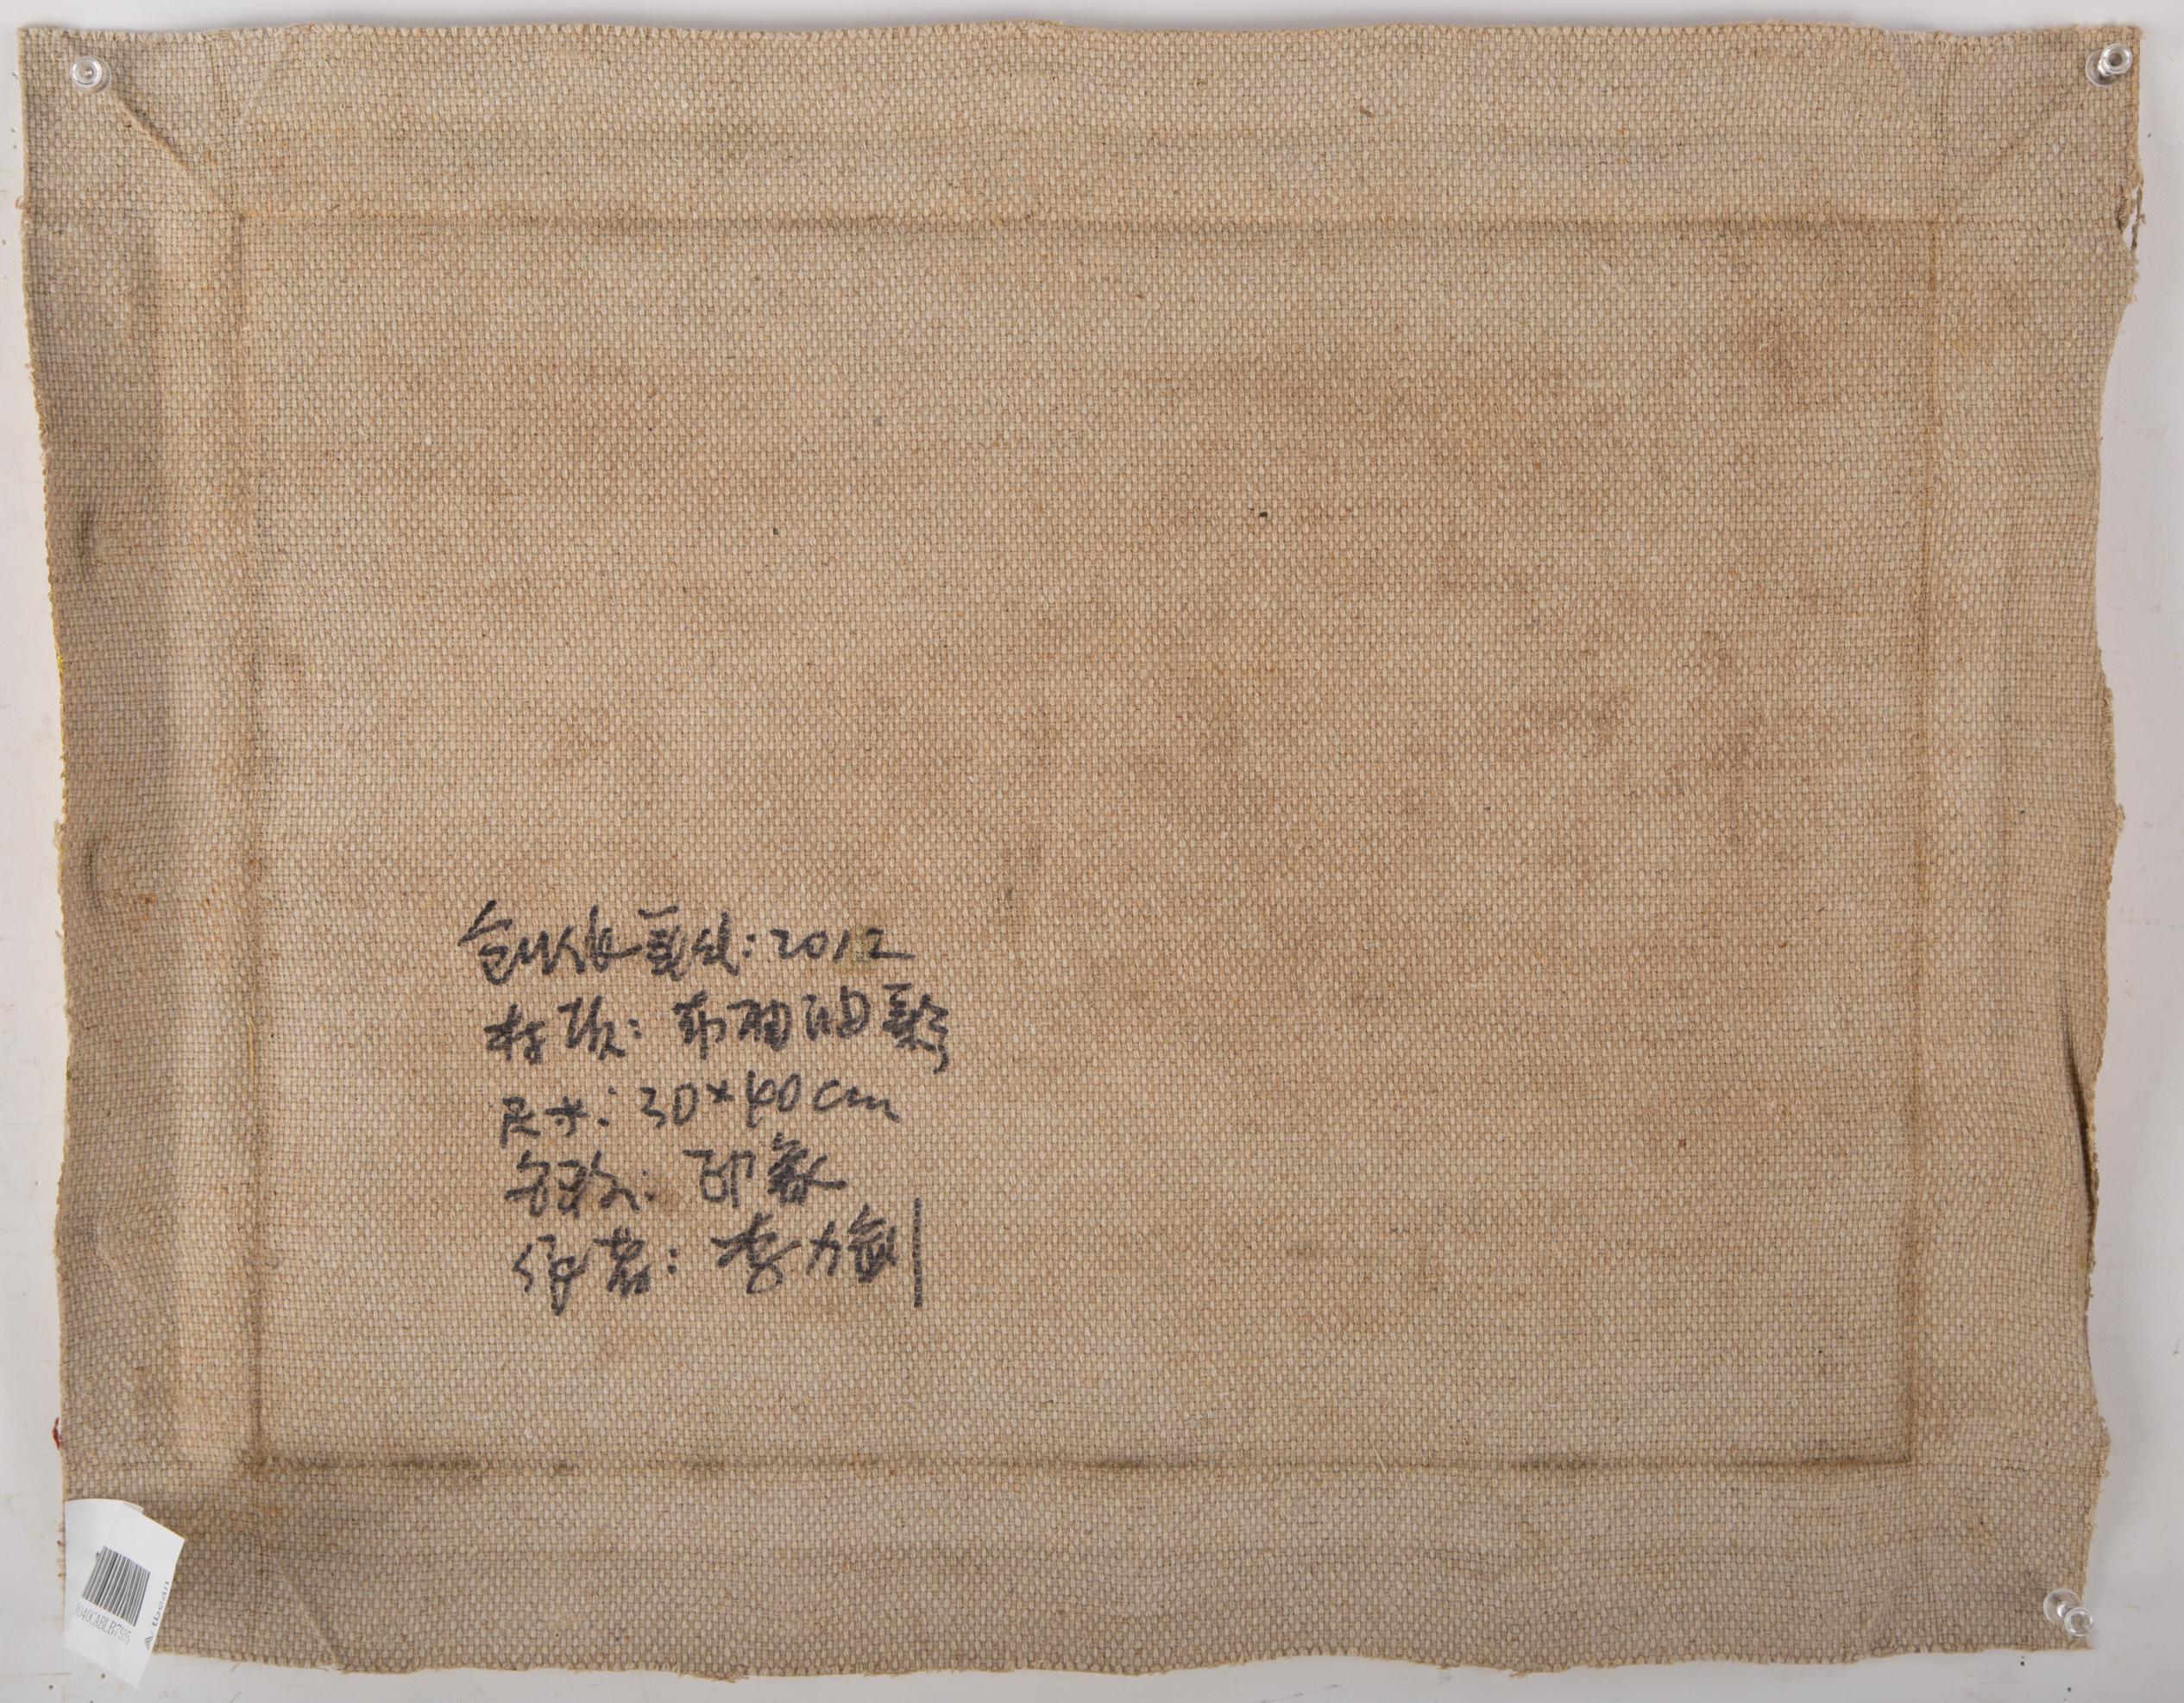 创作年代:2012
材质:布面油彩
尺寸:30×40cm
名称:印象
作者:李力剑